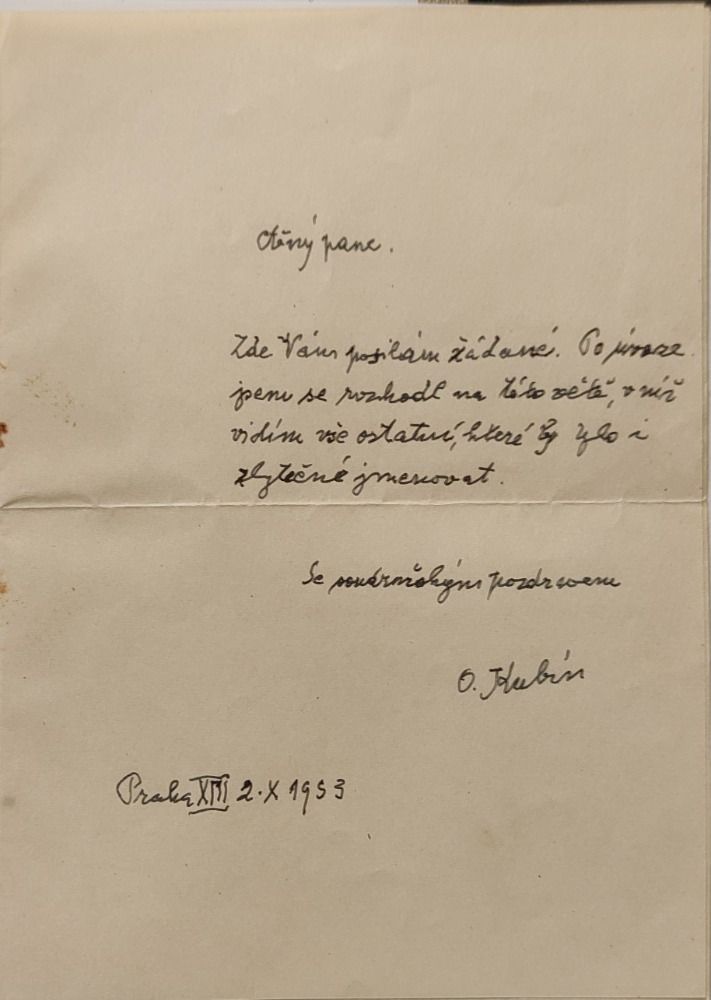 Ctěný pane.
Zde Vám posílám žádané. Po úvaze
jsem se rozhodl na této větě, v níž
vidím vše ostatní, které by bylo i
zbytečné jmenovat.
Se soukromým pozdravem
O. Kubín
Praha XIII 2.X 1953